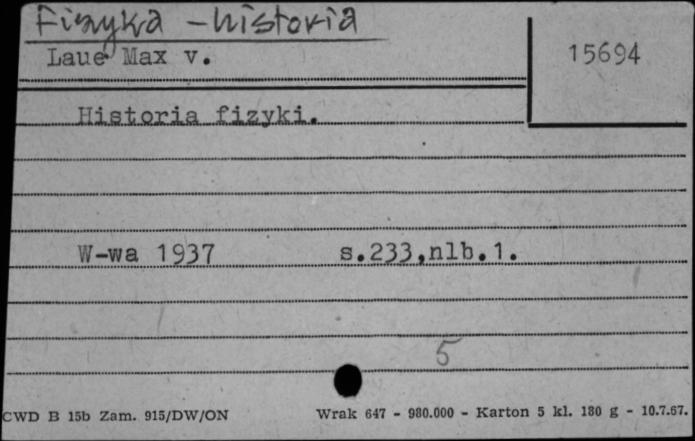 Fizyka - historia
Laue Max v.
15694
Historia fizyki.
W-wa 1937 s.233,nlb.1.
5
CWD B 15b Zam. 915/DW/ON Wrak 647 - 980.000 - Karton 5 kl. 180 g - 10.7.67.